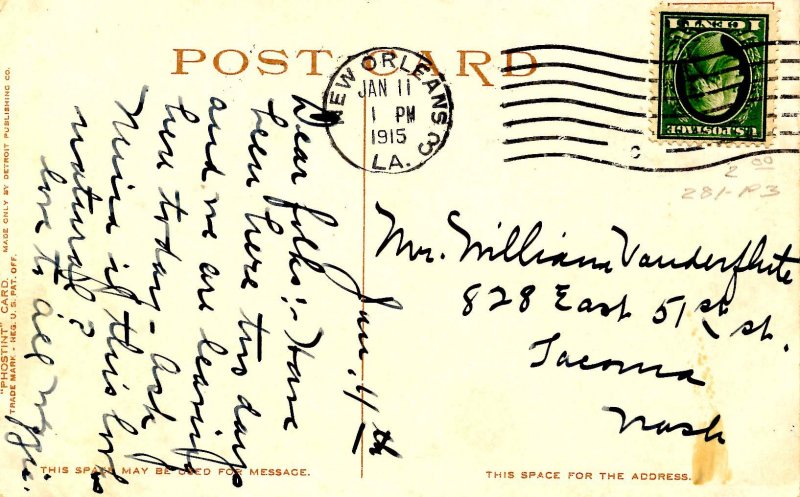 POST CARD
NEW ORLEANS 3
JAN 11
1 PM
1915
LA.
1 CENT 1
U.S. POSTAGE
2 00
281-P3
Jan. 11th
Dear folks:- Have
been here two days
and we are leaving
here today - ask
Mina if this looks
natural?
love to all
Mr. William Vanderflute
828 East 51st St.
Tacoma
Wash
"PHOSTINT" CARD. MADE ONLY BY DETROIT PUBLISHING CO.
TRADE MARK - REG. U.S. PAT. OFF.
THIS SPACE MAY BE USED FOR MESSAGE.
THIS SPACE FOR THE ADDRESS.